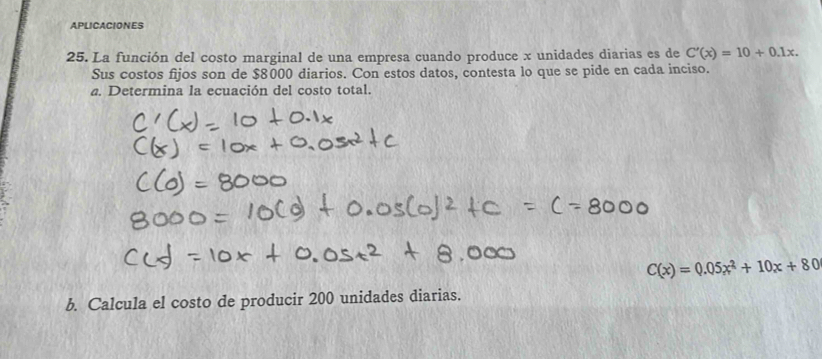 APLICACIONES
25. La función del costo marginal de una empresa cuando produce x unidades diarias es de C'(x) = 10 + 0.1x.
Sus costos fijos son de $8000 diarios. Con estos datos, contesta lo que se pide en cada inciso.
a. Determina la ecuación del costo total.
C'(x) = 10 + 0.1x
C(x) = 10x + 0.05x² + C
C(0) = 8000
8000 = 10(0) + 0.05(0)² + C = C = 8000
C(x) = 10x + 0.05x² + 8.000
C(x) = 0.05x² + 10x + 80
b. Calcula el costo de producir 200 unidades diarias.